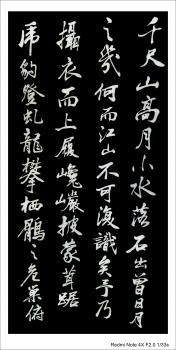 千尺山高月小水落石出曾日月
之幾何而江山不可復識矣予乃
攝衣而上履巉巖披蒙茸踞
虎豹登虬龍攀栖鶻之危巢俯
Redmi Note 4X F2.0 1/33s